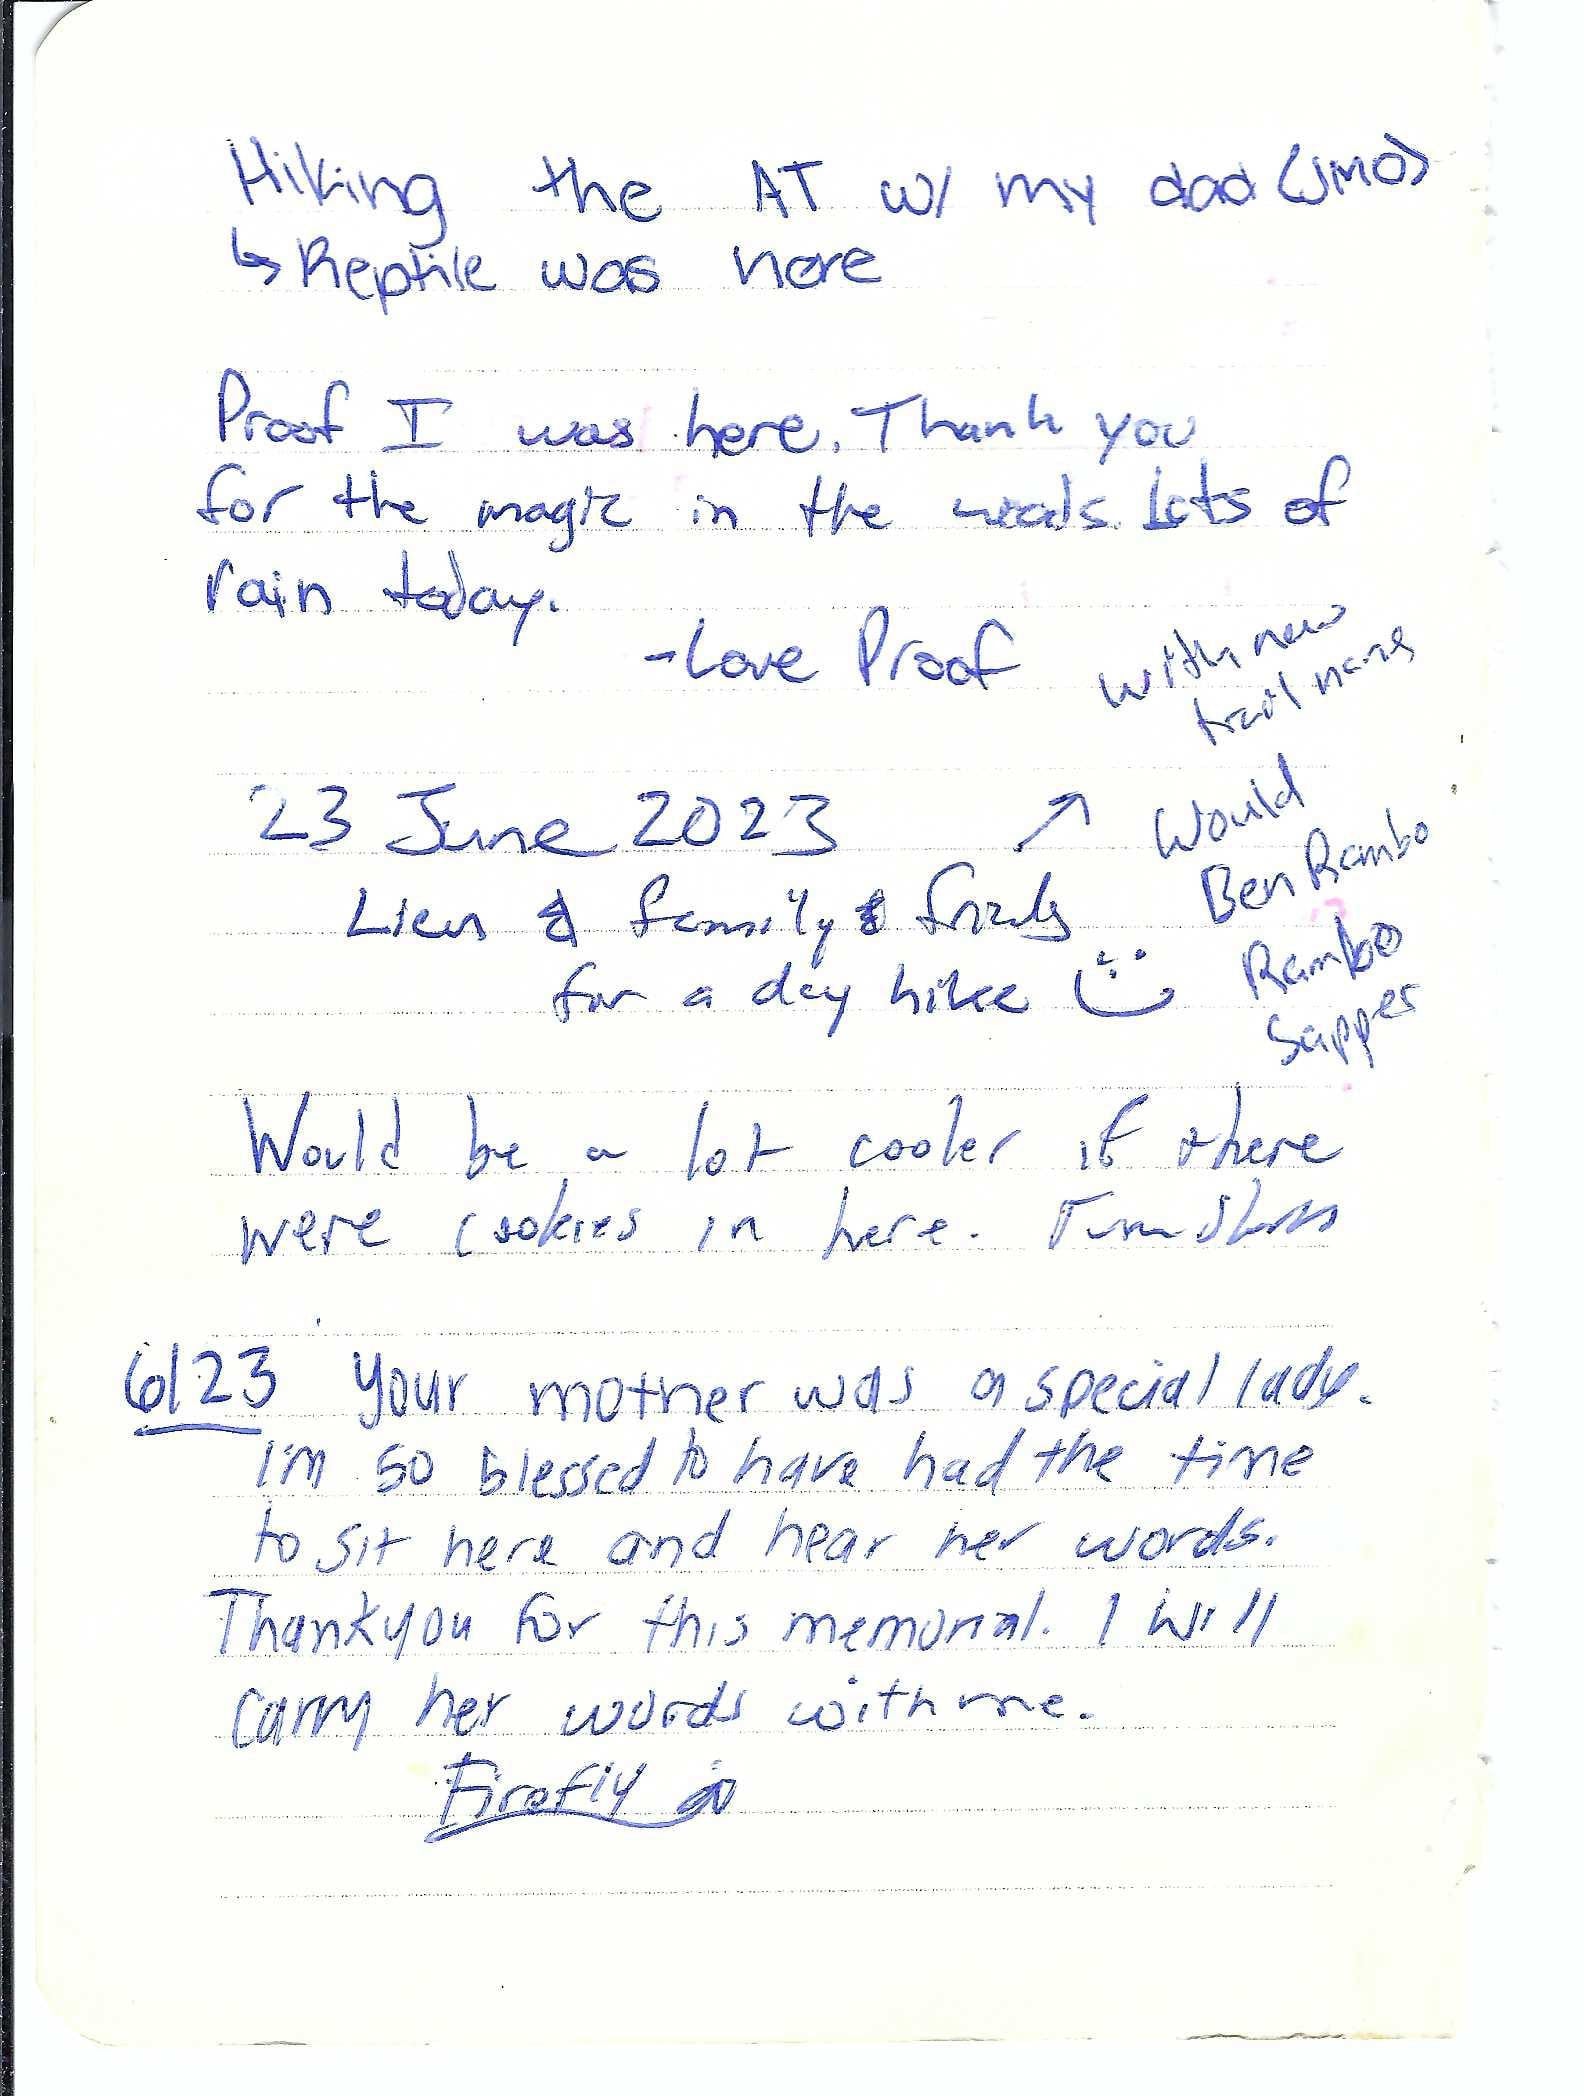 Hiking the AT w/ my dad (JMO)
↳ Reptile was here
Proof I was here. Thank you
for the magic in the woods. Lots of
rain today.
-Love Proof
with new
trail name
23 June 2023
& family & friends
for a day hike
↗
Would
Ben Rambo
Rambo
Sapper
Would be a lot cooler if there
were cookies in here.
6/23 Your mother was a special lady.
I'm so blessed to have had the time
to sit here and hear her words.
Thankyou for this memorial. I will
carry her words with me.
Firefly